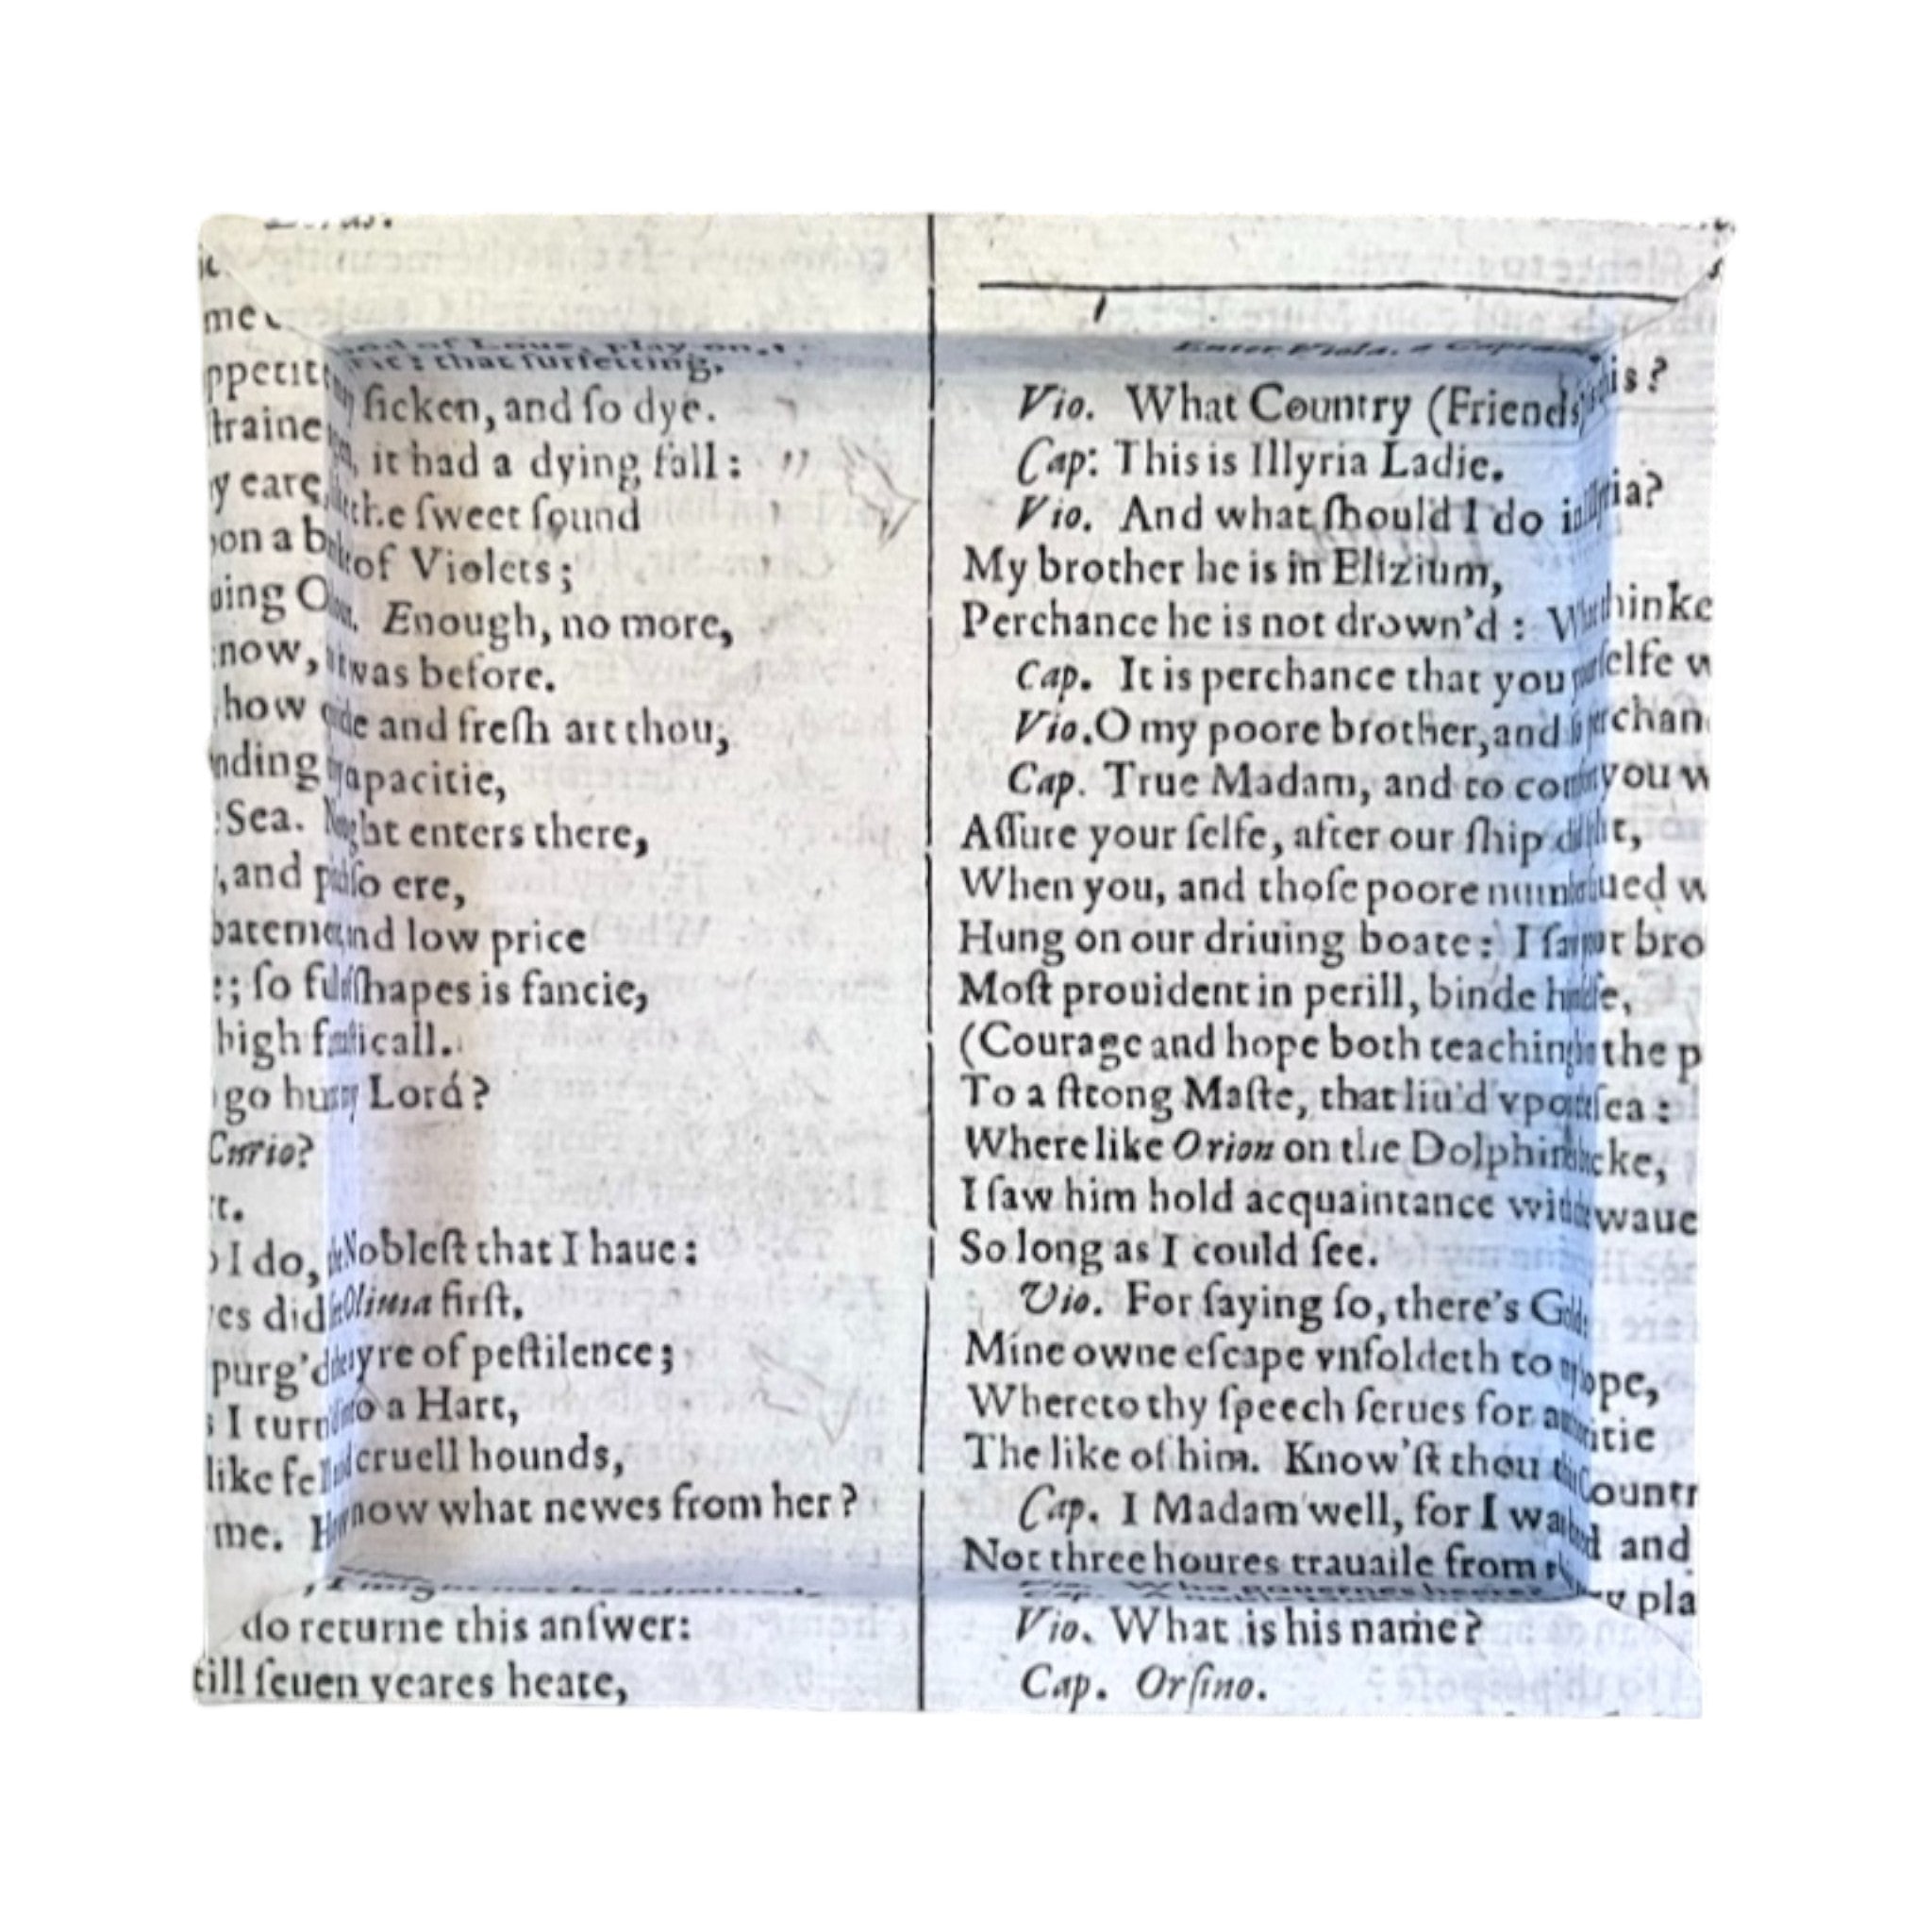 me
that surfetting,
ppetit ſicken, and ſo dye.
ſtraine it had a dying fall:
y eare, the ſweet ſound
on a b of Violets;
uing O Enough, no more,
now, twas before.
how and freſh art thou,
nding apacitie,
Sea. enters there,
, and ſo ere,
batem nd low price
; ſo full ſhapes is fancie,
high call.
go hu Lord?
Curio?
t.
I do, Nobleſt that I haue:
es did Oliuia firſt,
purg'd ayre of peſtilence;
I turn a Hart,
like fell cruell hounds,
me. How now what newes from her?
do returne this anſwer:
till ſeuen yeares heate,
Enter Viola, a
Vio. What Country (Friends) is this?
Cap: This is Illyria Ladie.
Vio. And what ſhould I do in Illyria?
My brother he is in Elizium,
Perchance he is not drown'd: What thinke
Cap. It is perchance that you your ſelfe w
Vio. O my poore brother, and ſo perchan
Cap. True Madam, and to comfort you w
Aſſure your ſelfe, after our ſhip did ſplit,
When you, and thoſe poore number ſaued w
Hung on our driuing boate: I ſaw your bro
Moſt prouident in perill, binde himſelfe,
(Courage and hope both teaching him the p
To a ſtrong Maſte, that liu'd vpon the ſea:
Where like Orion on the Dolphines backe,
I ſaw him hold acquaintance with the waue
So long as I could ſee.
Vio. For ſaying ſo, there's Gold:
Mine owne eſcape vnfoldeth to my hope,
Whereto thy ſpeech ſerues for authoritie
The like of him. Know'ſt thou this Countr
Cap. I Madam well, for I was bred and
Not three houres trauaile from this very pla
Vio. What is his name?
Cap. Orſino.